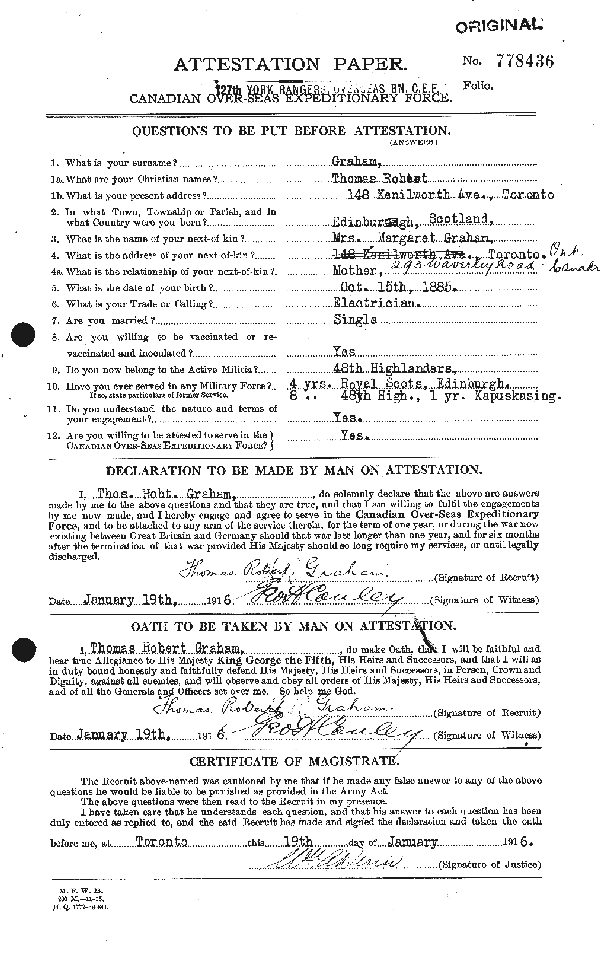 ORIGINAL
ATTESTATION PAPER.
No. 778436
Folio.
127th YORK RANGERS, OVERSEAS BN. C.E.F.
CANADIAN OVER-SEAS EXPEDITIONARY FORCE.
QUESTIONS TO BE PUT BEFORE ATTESTATION.
(ANSWERS)
1. What is your surname? Graham,
1a. What are your Christian names? Thomas Robert
1b. What is your present address? 148 Kenilworth Ave., Toronto
2. In what Town, Township or Parish, and in
what Country were you born? Edinburgh, Scotland,
3. What is the name of your next-of-kin? Mrs. Margaret Graham,
4. What is the address of your next-of-kin? 148 Kenilworth Ave., Toronto. Ont.
4a. What is the relationship of your next-of-kin? Mother, Waverley Road - Canada
5. What is the date of your birth? Oct. 15th, 1885.
6. What is your Trade or Calling? Electrician.
7. Are you married? Single
8. Are you willing to be vaccinated or re-
vaccinated and inoculated? Yes
9. Do you now belong to the Active Militia? 48th Highlanders,
10. Have you ever served in any Military Force? 4 yrs. Royal Scots, Edinburgh.
If so, state particulars of former Service. 8 .. 48th High., 1 yr. Kapuskasing.
11. Do you understand the nature and terms of
your engagement? Yes.
12. Are you willing to be attested to serve in the
CANADIAN OVER-SEAS EXPEDITIONARY FORCE? Yes.
DECLARATION TO BE MADE BY MAN ON ATTESTATION.
I, Thos. Robt. Graham, do solemnly declare that the above are answers
made by me to the above questions and that they are true, and that I am willing to fulfil the engagements
by me now made, and I hereby engage and agree to serve in the Canadian Over-Seas Expeditionary
Force, and to be attached to any arm of the service therein, for the term of one year, or during the war now
existing between Great Britain and Germany should that war last longer than one year, and for six months
after the termination of that war provided His Majesty should so long require my services, or until legally
discharged.
Thomas Robert Graham. (Signature of Recruit)
Date January 19th, 1916. (Signature of Witness)
OATH TO BE TAKEN BY MAN ON ATTESTATION.
I, Thomas Robert Graham, do make Oath, that I will be faithful and
bear true Allegiance to His Majesty King George the Fifth, His Heirs and Successors, and that I will as
in duty bound honestly and faithfully defend His Majesty, His Heirs and Successors, in Person, Crown and
Dignity, against all enemies, and will observe and obey all orders of His Majesty, His Heirs and Successors,
and of all the Generals and Officers set over me. So help me God.
Thomas Robert Graham. (Signature of Recruit)
Date January 19th, 1916 (Signature of Witness)
CERTIFICATE OF MAGISTRATE.
The Recruit above-named was cautioned by me that if he made any false answer to any of the above
questions he would be liable to be punished as provided in the Army Act.
The above questions were then read to the Recruit in my presence.
I have taken care that he understands each question, and that his answer to each question has been
duly entered as replied to, and the said Recruit has made and signed the declaration and taken the oath
before me, at Toronto this 19th day of January 1916.
(Signature of Justice)